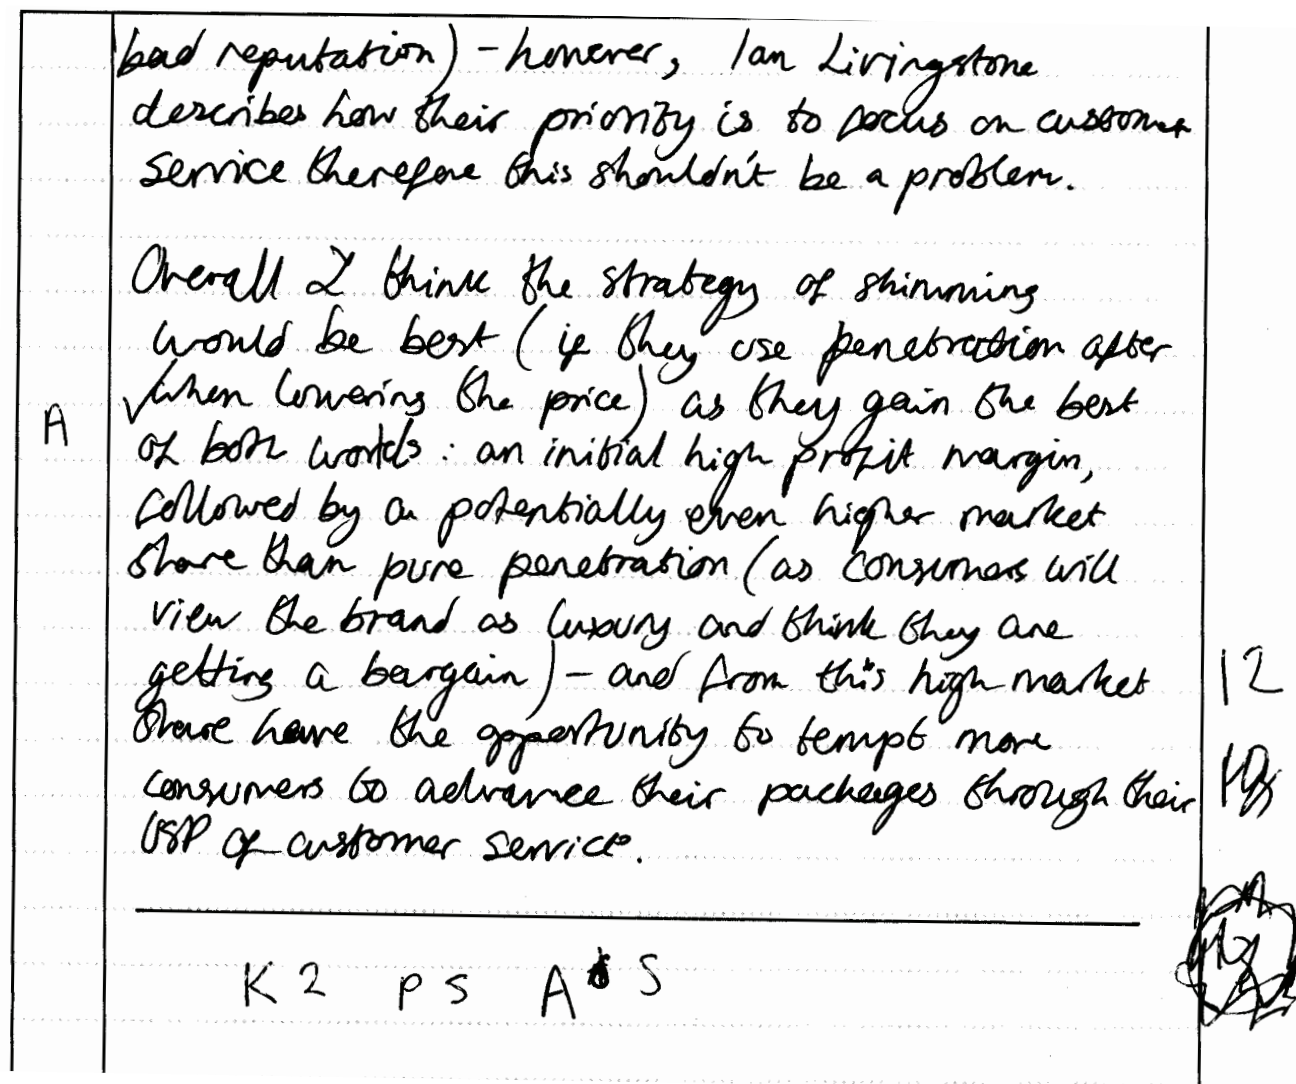 bad reputation) - however, Ian Livingstone
describes how their priority is to focus on customer
service therefore this shouldn't be a problem.
Overall I think the strategy of skimming
would be best (if they use penetration after
when lowering the price) as they gain the best
A
of both worlds : an initial high profit margin,
followed by a potentially even higher market
share than pure penetration (as consumers will
view the brand as luxury and think they are
getting a bargain) - and from this high market
12
share have the opportunity to tempt more
consumers to advance their packages through their
USP of customer service.
K2 P5 A 5